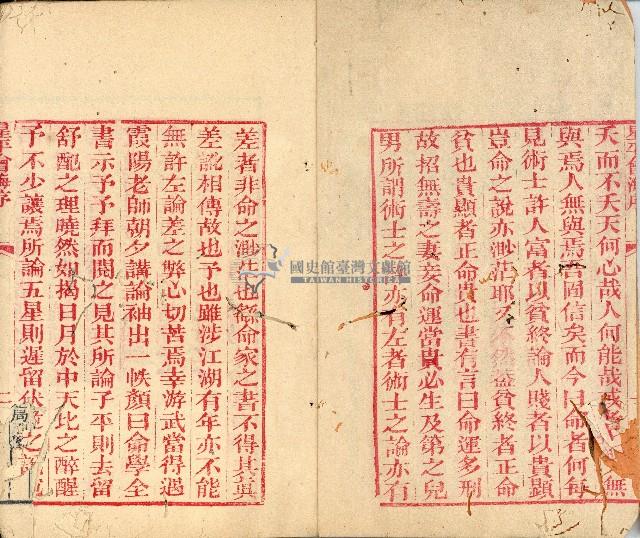 夭而不夭天何心哉人何能哉
無與焉人無與焉固信矣而今曰命者何每
見術士許人富者以貧終論人賤者以貴顯
豈命之說亦渺茫耶不然蓋貧終者正命
貧也貴顯者正命貴也書有言曰命運多刑
故招無壽之妻妾命運當貴必生及第之兒
男所謂術士之亦有左者術士之論亦有
差者非命之渺茫也緣命家之書不得其真
差訛相傳故也予也雖涉江湖有年亦不能
無許左論差之弊心切苦焉幸游武當得遇
霞陽老師朝夕講論袖出一帙顏曰命學全
書示予予拜而閱之見其所論子平則去留
舒配之理曉然如揭日月於中天比之醉醒
子不少讓焉所論五星則遲留伏之
星平會海序
二
國史館臺灣文獻館
TAIWAN HISTORICA